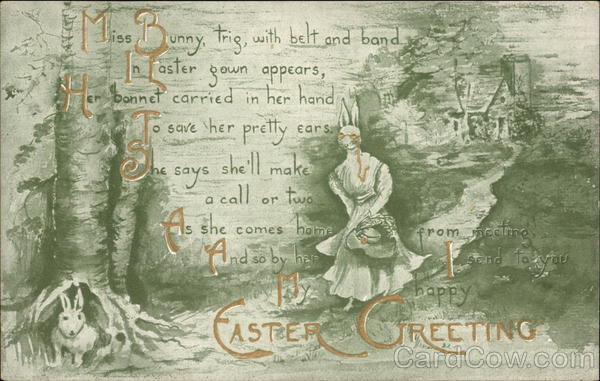 Miss Bunny, trig, with belt and band
In Easter gown appears,
Her bonnet carried in her hand
To save her pretty ears.
She says she'll make
a call or two
As she comes home from meeting.
And so by her I send to you
My happy
EASTER GREETING
CardCow.com